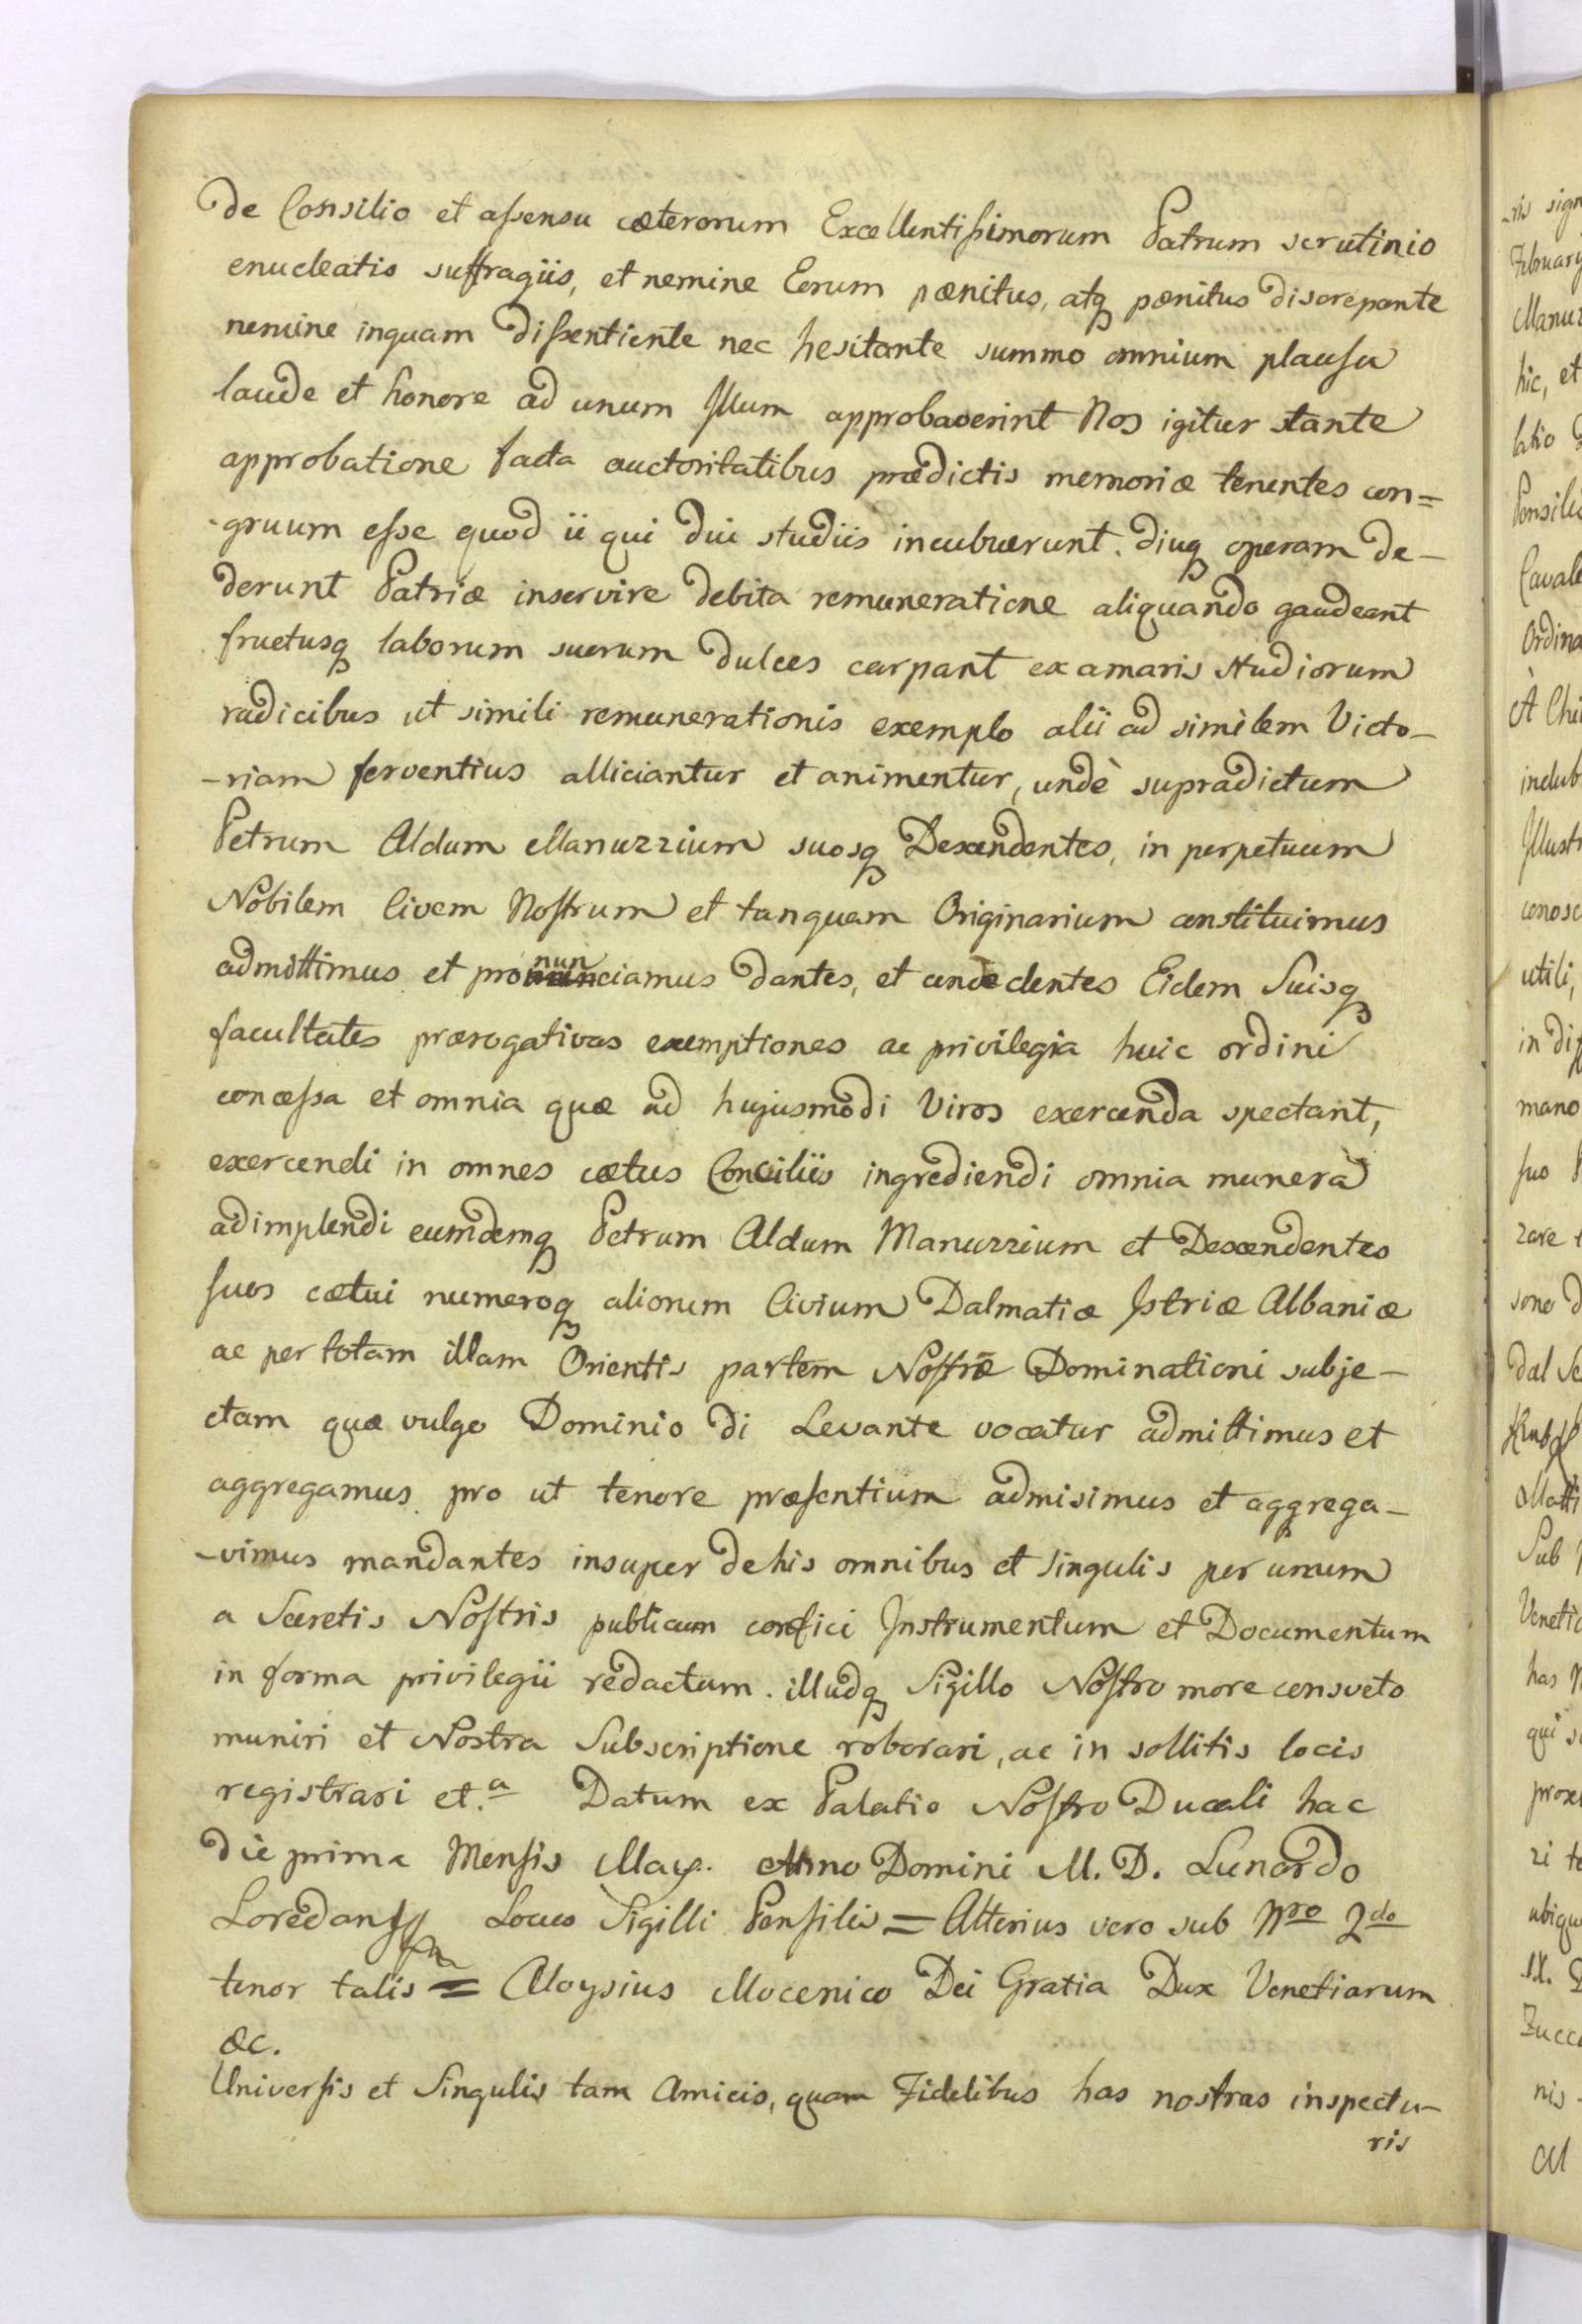 de Consilio et assensu cæterorum Excellentissimorum Patrum scrutinio
enucleatis suffragiis, et nemine Eorum pænitus, atq pænitus discrepante
nemine inquam dissentiente nec hesitante summo omnium plausu
laude et honore ad unum Illum approbaverint Nos igitur stante
approbatione facta auctoritatibus prædictis memoriæ tenentes con=
-gruum esse quod ii qui diu studiis incubuerunt. diuq operam de-
derunt Patriæ inservire debita remuneratione aliquando gaudeant
fructusq laborum suorum dulces carpant ex amaris studiorum
radicibus ut simili remunerationis exemplo alii ad similem Victo-
-riam ferventius alliciantur et animentur, undè supradictum
Petrum Aldum Manuzzium suosq Descendentes, in perpetuum
Nobilem Civem Nostrum et tanquam Originarium constituimus
admittimus et pronunciamus dantes, et concedentes Eidem Suisq
facultates prærogativas exemptiones ac privilegia huic ordini
concessa et omnia quæ ad hujusmodi Viros exercenda spectant,
exercendi in omnes cætus Conciliis ingrediendi omnia munera
adimplendi eumdemq Petrum Aldum Manuzzium et Descendentes
suos cætui numeroq aliorum Civium Dalmatiæ Istriæ Albaniæ
ac per totam illam Orientis partem Nostræ Dominationi subje-
ctam quæ vulgo Dominio di Levante vocatur admittimus et
aggregamus pro ut tenore præsentium admisimus et aggrega-
-vimus mandantes insuper de his omnibus et singulis per unum
a Secretis Nostris publicum confici Instrumentum et Documentum
in forma privilegii redactum. illudq Sigillo Nostro more consveto
muniri et Nostra Subscriptione roborari, ac in sollitis locis
registrari et.a Datum ex Palatio Nostro Ducali hac
die prima Mensis May. Anno Domini M. D. Lunardo
Loredan Locus Sigilli Pensilis = Alterius vero sub Nro 2do
tenor talis = Aloysius Mocenico Dei Gratia Dux Venetiarum
&c.
Universis et Singulis tam Amicis, quam Fidelibus has nostras inspectu-
ris